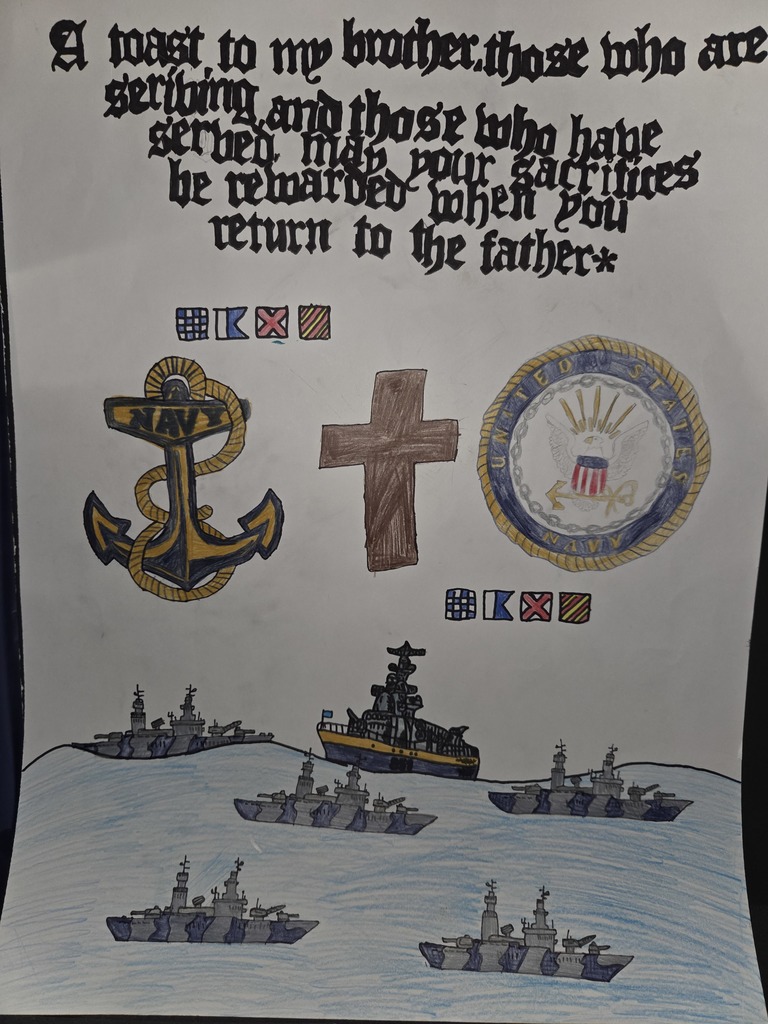 A toast to my brother, those who are
serving, and those who have
served, may your sacrifices
be rewarded when you
return to the father*
NAVY
UNITED STATES
NAVY